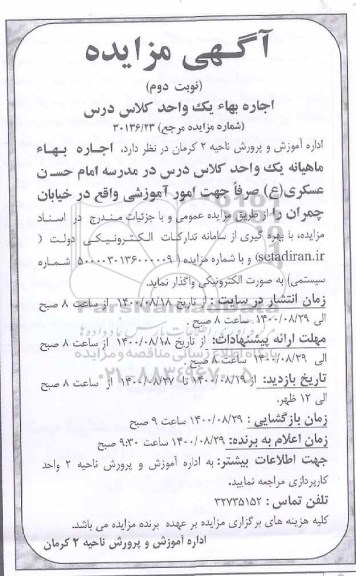 آگهی مزایده
(نوبت دوم)
اجاره بهاء یک واحد کلاس درس
(شماره مزایده مرجع) ۳۰۱۳۶/۲۳
اداره آموزش و پرورش ناحیه ۲ کرمان در نظر دارد، اجاره بهاء
ماهیانه یک واحد کلاس درس در مدرسه امام حسن
عسکری(ع) صرفاً جهت امور آموزشی واقع در خیابان
چمران را از طریق مزایده عمومی و با جزئیات مندرج در اسناد
مزایده، با بهره گیری از سامانه تدارکات الکترونیکی دولت (
setadiran.ir) و با شماره مزایده (۵۰۰۰۰۳۰۱۳۶۰۰۰۰۰۹ شماره
سیستمی) به صورت الکترونیکی واگذار نماید.
زمان انتشار در سایت : از تاریخ ۱۴۰۰/۰۸/۱۸ از ساعت ۸ صبح
الی ۱۴۰۰/۰۸/۲۹ ساعت ۸ صبح .
مهلت ارائه پیشنهادات: از تاریخ ۱۴۰۰/۰۸/۱۸ از ساعت ۸ صبح
الی ۱۴۰۰/۰۸/۲۹ ساعت ۸ صبح
تاریخ بازدید: از ۱۴۰۰/۰۸/۱۹ تا ۱۴۰۰/۰۸/۲۷ از ساعت ۸ صبح
الی ۱۲ ظهر.
زمان بازگشایی : ۱۴۰۰/۰۸/۲۹ ساعت ۹ صبح
زمان اعلام به برنده: ۱۴۰۰/۰۸/۲۹ ساعت ۹:۳۰ صبح
جهت اطلاعات بیشتر: به اداره آموزش و پرورش ناحیه ۲ واحد
کارپردازی مراجعه نمایید.
تلفن تماس : ۳۲۷۳۵۱۵۲
کلیه هزینه های برگزاری مزایده بر عهده برنده مزایده می باشد.
اداره آموزش و پرورش ناحیه ۲ کرمان